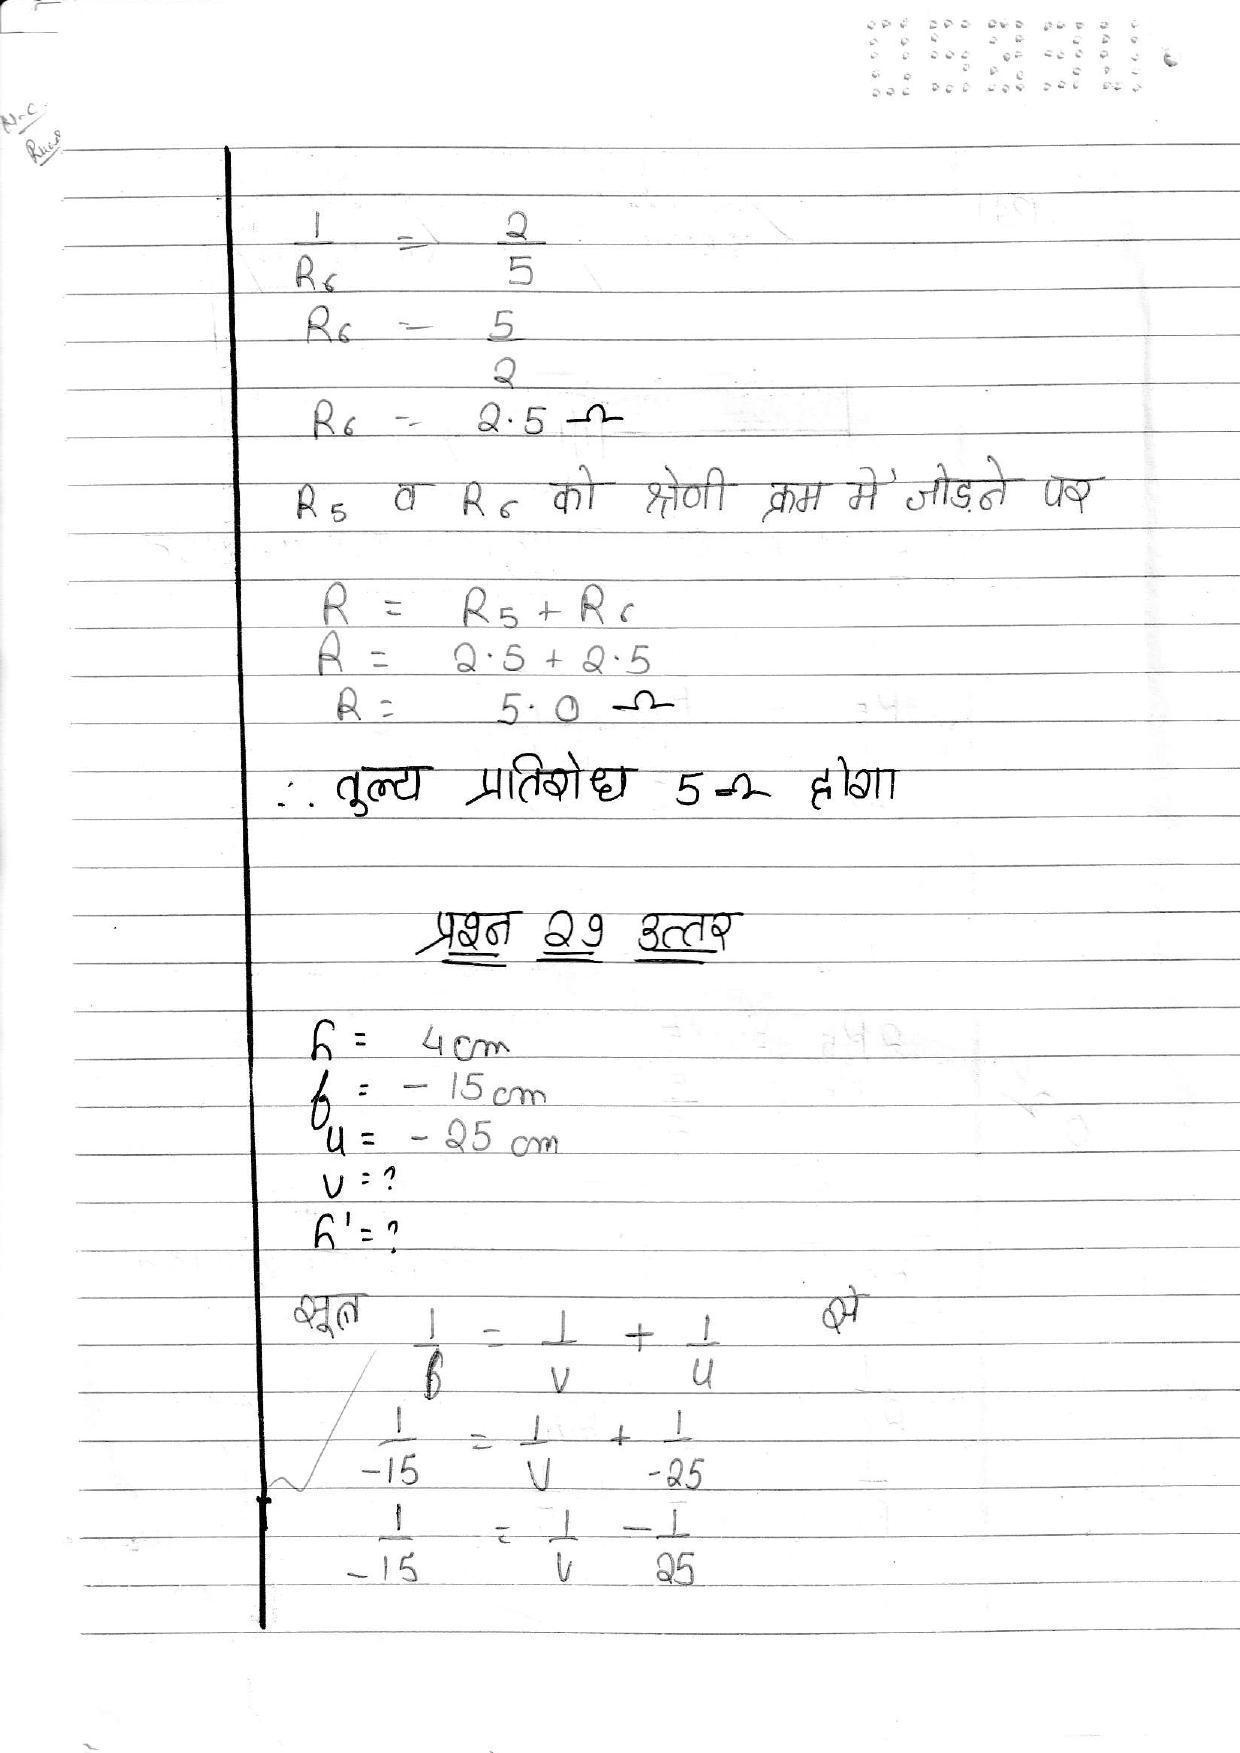 1/R₆ = 2/5
R₆ = 5/2
R₆ = 2.5 Ω
R₅ व R₆ को श्रेणी क्रम में जोड़ने पर
R = R₅ + R₆
R = 2.5 + 2.5
R = 5.0 Ω
∴ तुल्य प्रतिरोध 5Ω होगा
प्रश्न 29 उत्तर
h = 4cm
f = - 15cm
u = - 25 cm
v = ?
h' = ?
सूत्र 1/f = 1/v + 1/u से
1/-15 = 1/v + 1/-25
1/-15 = 1/v - 1/25